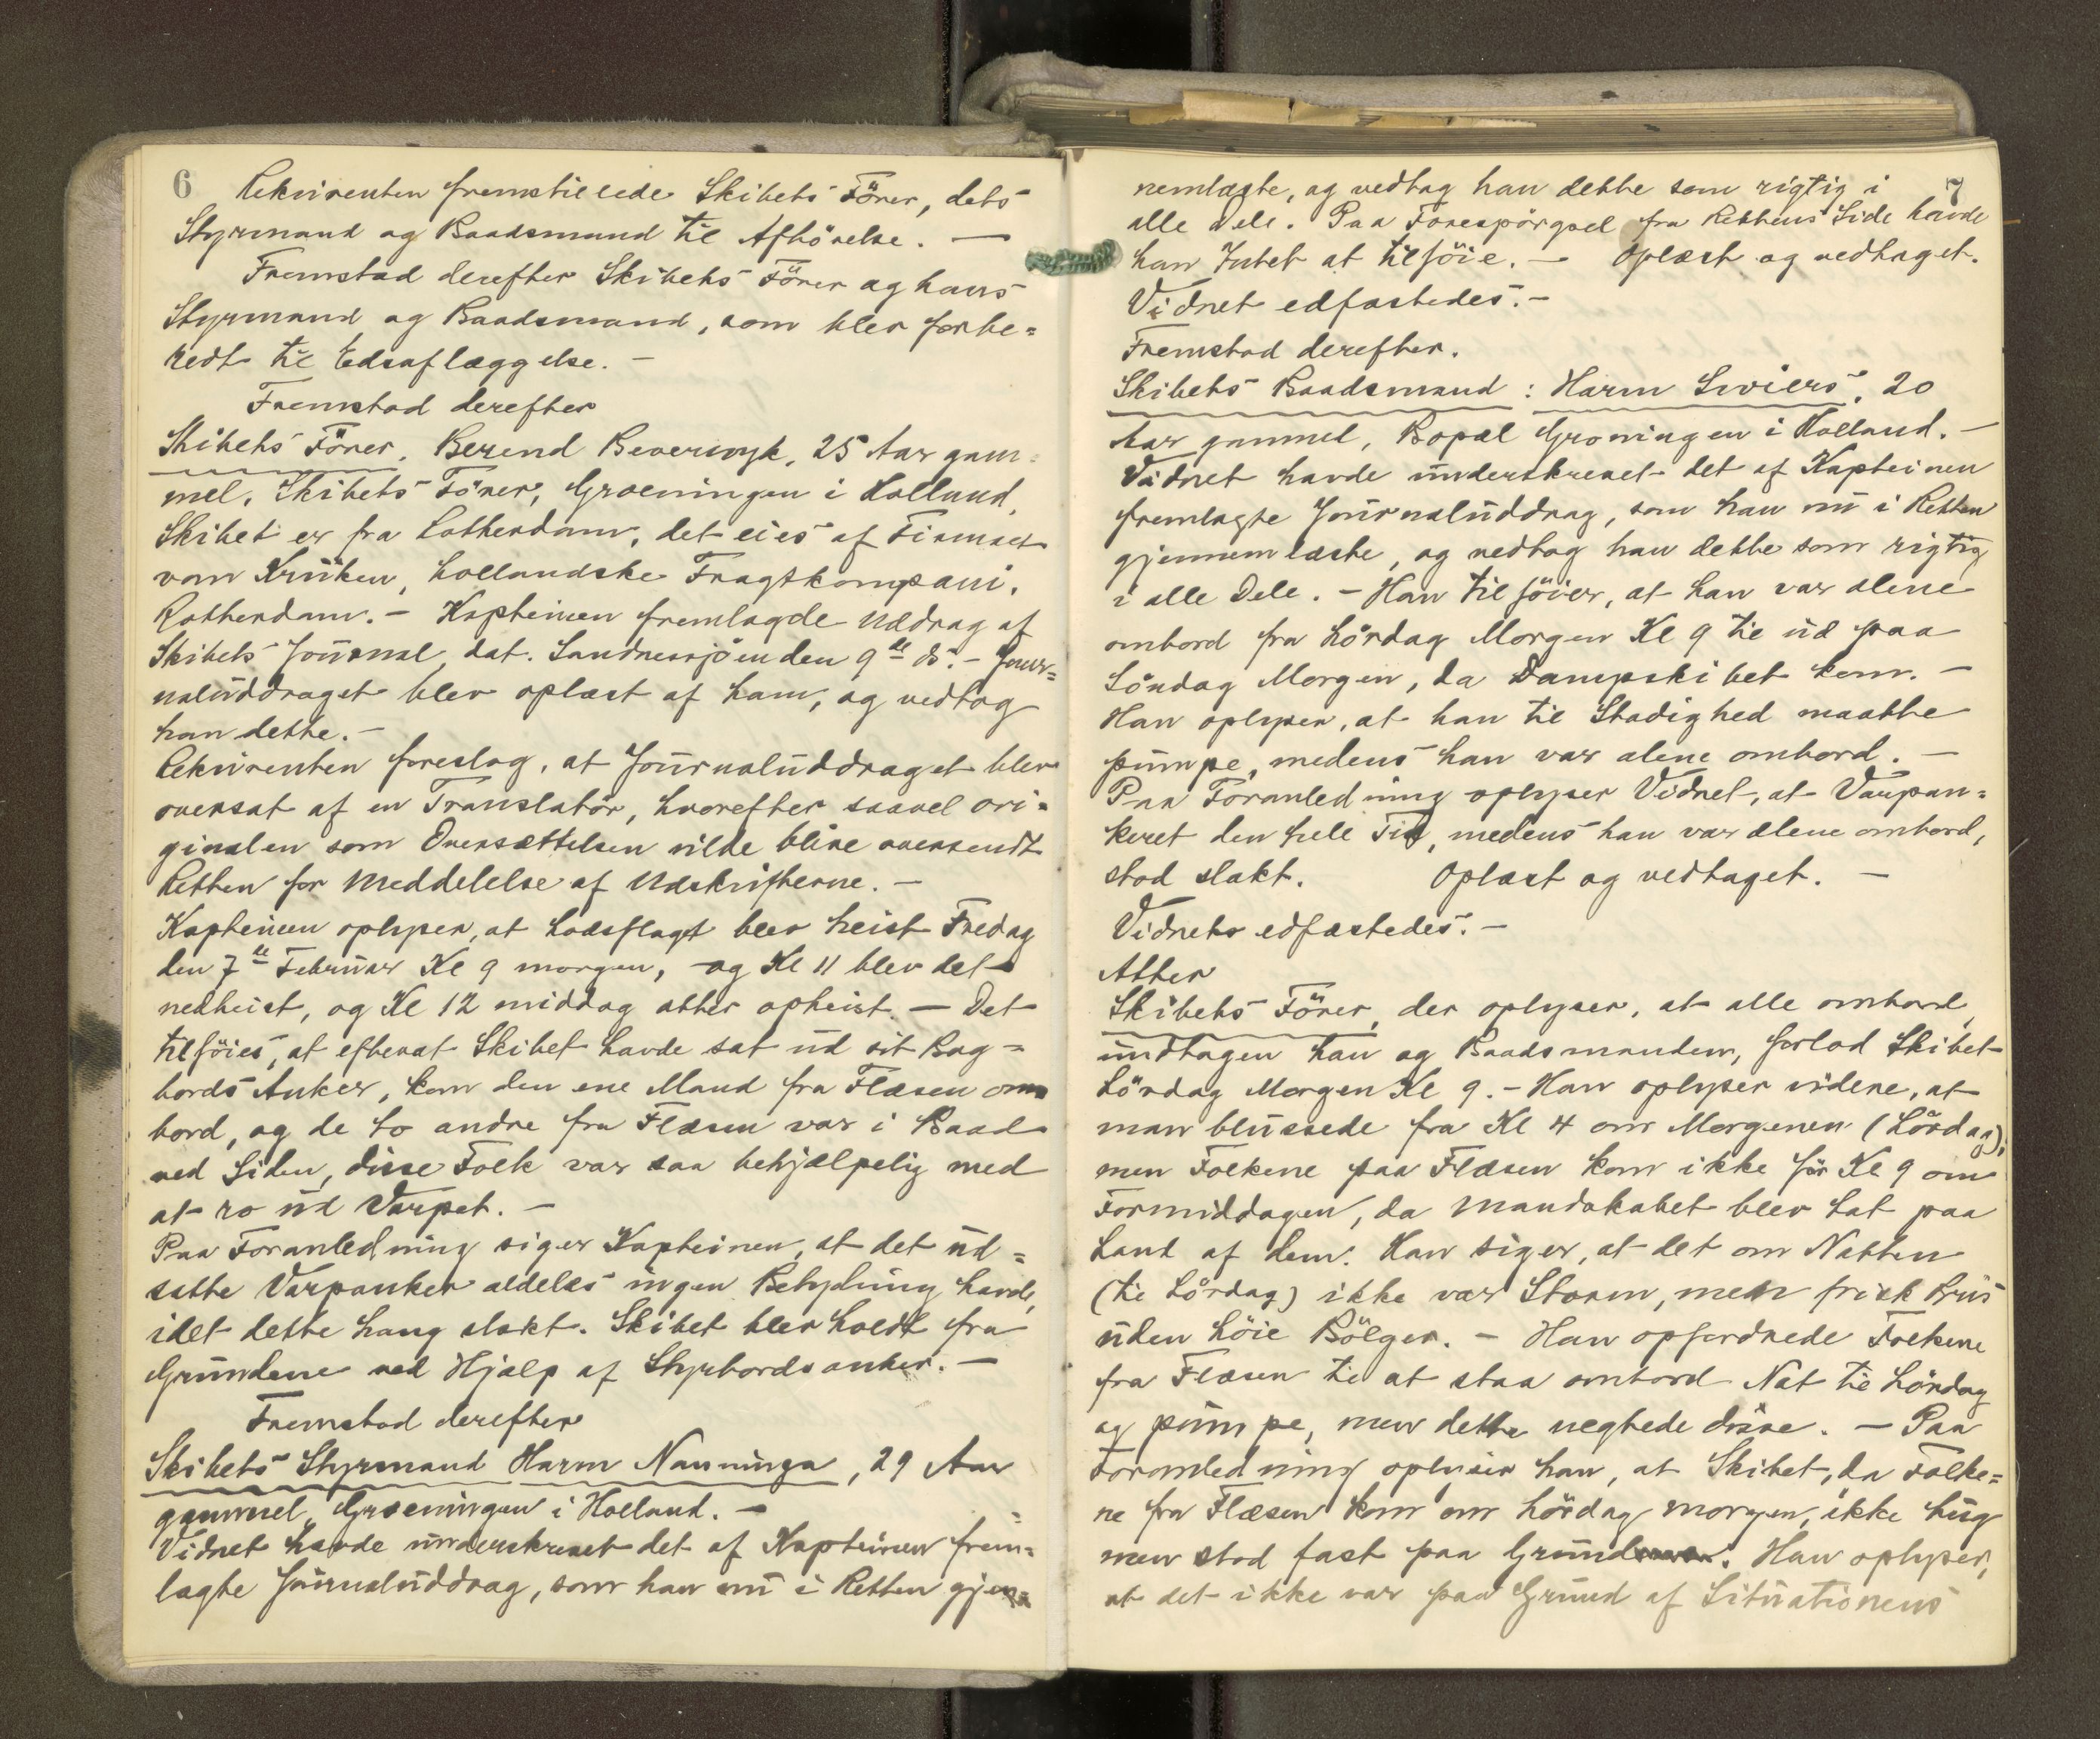 6
Rekvirenten fremstillede Skibets Förer, dets
Styrmand og Baadsmand til Afhörelse. —
Fremstod derefter Skibets Förer og hans
Styrmand og Baadsmand, som blev forbe=
redt til Edsaflæggelse. —
Fremstod derefter
Skibets Förer, Berend Beverwyk, 25 Aar gam=
mel, Skibets Förer, Groeningen i Holland,
Skibet er fra Rotterdam, det eies af Firmaet
van Krüken, hollandske Fragtkompani,
Rotterdam. — Kapteinen fremlagde Uddrag af
Skibets Journal, dat. Sandnessjöen den 9de ds. — Jour=
naluddraget blev oplæst af ham, og vedtog
han dette. —
Rekvirenten foreslog, at Journaluddraget blev
oversat af en Translatör, hvorefter saavel ori=
ginalen som Oversættelsen vilde blive oversendt
Retten for Meddelelse af Udskrifterne. —
Kapteinen oplyser, at Lodsflagt blev heist Fredag
den 7de Februar Kl 9 morgen, og Kl 11 blev det
nedheist, og Kl 12 middag atter opheist. — Det
tilföies, at efterat Skibet havde sat ud sit Bag=
bords Anker, kom den ene Mand fra Flæsen om
bord, og de to andre fra Flæsen var i Baad
ved Siden, disse Folk var saa behjælpelig med
at ro ud Varpet. —
Paa Foranledning siger Kapteinen, at det ud=
satte Varpanker aldeles ingen Betydning havde,
idet dette hang slakt. Skibet blev holdt fra
Grundene ved Hjælp af Styrbords anker. —
Fremstod derefter
Skibets Styrmand Harm Nanninga, 29 Aar
gammel, Groeningen i Holland. —
Vidnet havde underskrevet det af Kapteinen frem=
lagte Journaluddrag, som han nu i Retten gjen=
7
nemlæste, og vedtog han dette som rigtig i
alle Dele. Paa Forespörgsel fra Rettens Side havde
han Intet at tilföie. — Oplæst og vedtaget.
Vidnet edfæstedes. —
Fremstod derefter.
Skibets Baadsmand: Harm Swiers, 20
Aar gammel, Bopæl Groningen i Holland. —
Vidnet havde underskrevet det af Kapteinen
fremlagte Journaluddrag, som han nu i Retten
gjennemlæste, og vedtog han dette som rigtig
i alle Dele. — Han tilföier, at han var alene
ombord fra Lördag Morgen Kl 9 til ud paa
Söndag Morgen, da Dampskibet kom. —
Han oplyser, at han til Stadighed maatte
pumpe, medens han var alene ombord. —
Paa Foranledning oplyser Vidnet, at Varpan=
keret den hele Tid, medens han var alene ombord,
stod slakt. Oplæst og vedtaget. —
Vidnets edfæstedes. —
Atter
Skibets Förer, der oplyser, at alle ombord,
undtagen han og Baadsmanden, forlod Skibet
Lördag Morgen Kl 9. — Han oplyser videre, at
man blussede fra Kl 4 om Morgenen (Lördag),
men Folkene paa Flæsen kom ikke för Kl 9 om
Formiddagen, da Mandskabet blev tat paa
Land af dem. Han siger, at det om Natten
(til Lördag) ikke var Storm, men frisk Bris
uden höie Bölger. — Han opfordrede Folkene
fra Flæsen til at staa ombord Nat til Lördag
og pumpe, men dette negtede disse. — Paa
Foranledning oplyser han, at Skibet, da Folke=
ne fra Flæsen kom om Lördag morgen, ikke hug
men stod fast paa Grund. Han oplyser,
at det ikke var paa Grund af Situationens